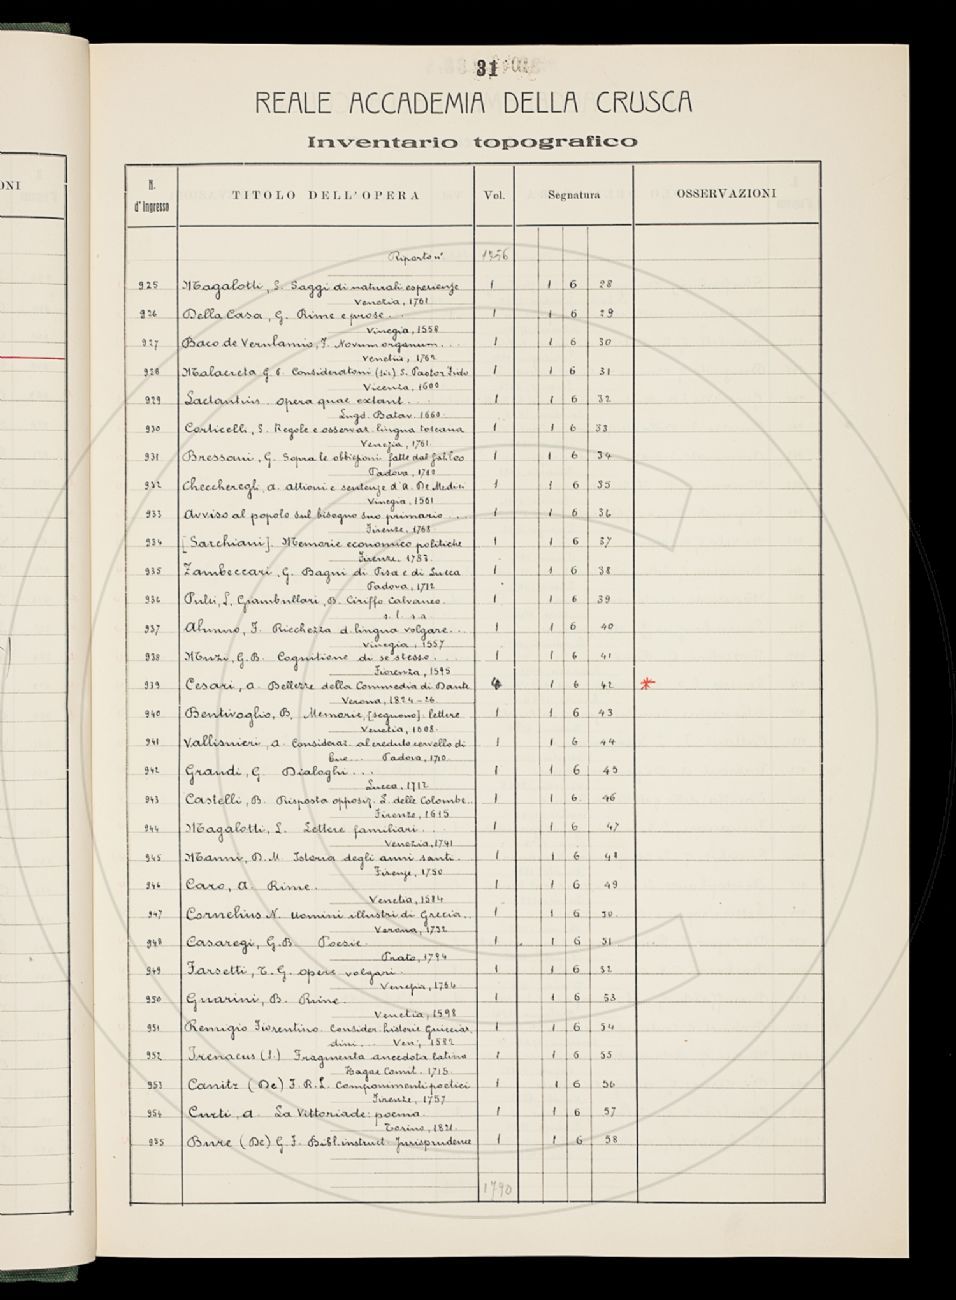 31
REALE ACCADEMIA DELLA CRUSCA
Inventario topografico
ONI
N. d'Ingresso TITOLO DELL'OPERA Vol. Segnatura OSSERVAZIONI
Riporto n. 1756
925 Magalotti, L. Saggi di naturali esperienze 1 1 6 28
Venezia, 1761
926 Della Casa, G. Rime e prose . . 1 1 6 29
Vinegia, 1558
927 Baco de Verulamio, F. Novum organum . . . 1 1 6 30
Venetiis, 1762
928 Malacreta G. B. Consideratoni (sic) s. Pastor Fido 1 1 6 31
Vicenza, 1600
929 Lactantius opera quae extant . . . 1 1 6 32
Lugd. Batav. 1660.
930 Corticelli, S. Regole e osservaz. lingua toscana 1 1 6 33
Venezia, 1761.
931 Bressani, G. Sopra le obbiezioni fatte dal Galileo 1 1 6 34
Padova, 1710
932 Checcheregli, A. Attioni e sentenze d'A. De Medici 1 1 6 35
Vinegia, 1561
933 Avviso al popolo sul bisogno suo primario . . . 1 1 6 36
Firenze, 1768.
934 [Sarchiani]. Memorie economico politiche 1 1 6 37
Firenze, 1783.
935 Zambeccari, G. Bagni di Pisa e di Lucca 1 1 6 38
Padova, 1712
936 Pulci, L. Giambullari, B. Ciriffo Calvaneo. 1 1 6 39
s. l. s. a
937 Alunno, F. Ricchezza d. lingua volgare . . . 1 1 6 40
Vinegia, 1557
938 Muzi, G. B. Cognitione di se stesso . . . 1 1 6 41
Fiorenza, 1595
939 Cesari, A. Bellezze della Commedia di Dante 4 1 6 42 *
Verona, 1824-26.
940 Bentivoglio, B. Memorie, [seguono] lettere 1 1 6 43
Venetia, 1668.
941 Vallisnieri, A. Consideraz. al creduto cervello di 1 1 6 44
bue . . . Padova, 1710.
942 Grandi, G. Dialoghi . . . 1 1 6 45
Lucca, 1712
943 Castelli, B. Risposta opposiz. L. delle Colombe . . 1 1 6 46
Firenze, 1615
944 Magalotti, L. Lettere familiari . . . 1 1 6 47
Venezia, 1741
945 Manni, D. M. Istoria degli anni santi . 1 1 6 48
Firenze, 1750
946 Caro, A. Rime. 1 1 6 49
Venetia, 1584
947 Cornelius N. Uomini illustri di Grecia . . 1 1 6 50
Verona, 1732
948 Casaregi, G. B. Poesie. 1 1 6 51
Prato, 1794
949 Farsetti, T. G. opere volgari. 1 1 6 52
Venezia, 1764
950 Guarini, B. Rime. 1 1 6 53
Venetia, 1598
951 Remigio Fiorentino. Consider. historie Guicciar- 1 1 6 54
dini . . . Ven., 1582
952 Irenaeus (S.) Fragmenta anecdota latina 1 1 6 55
Hagae Comit. 1715.
953 Canitz (De) F. R. L. Componimenti poetici 1 1 6 56
Firenze, 1757
954 Curti, A. La Vittoriade: poema. 1 1 6 57
Torino, 1821.
955 Bure (De) G. F. Bibl. instruct. Jurisprudence 1 1 6 58
1790